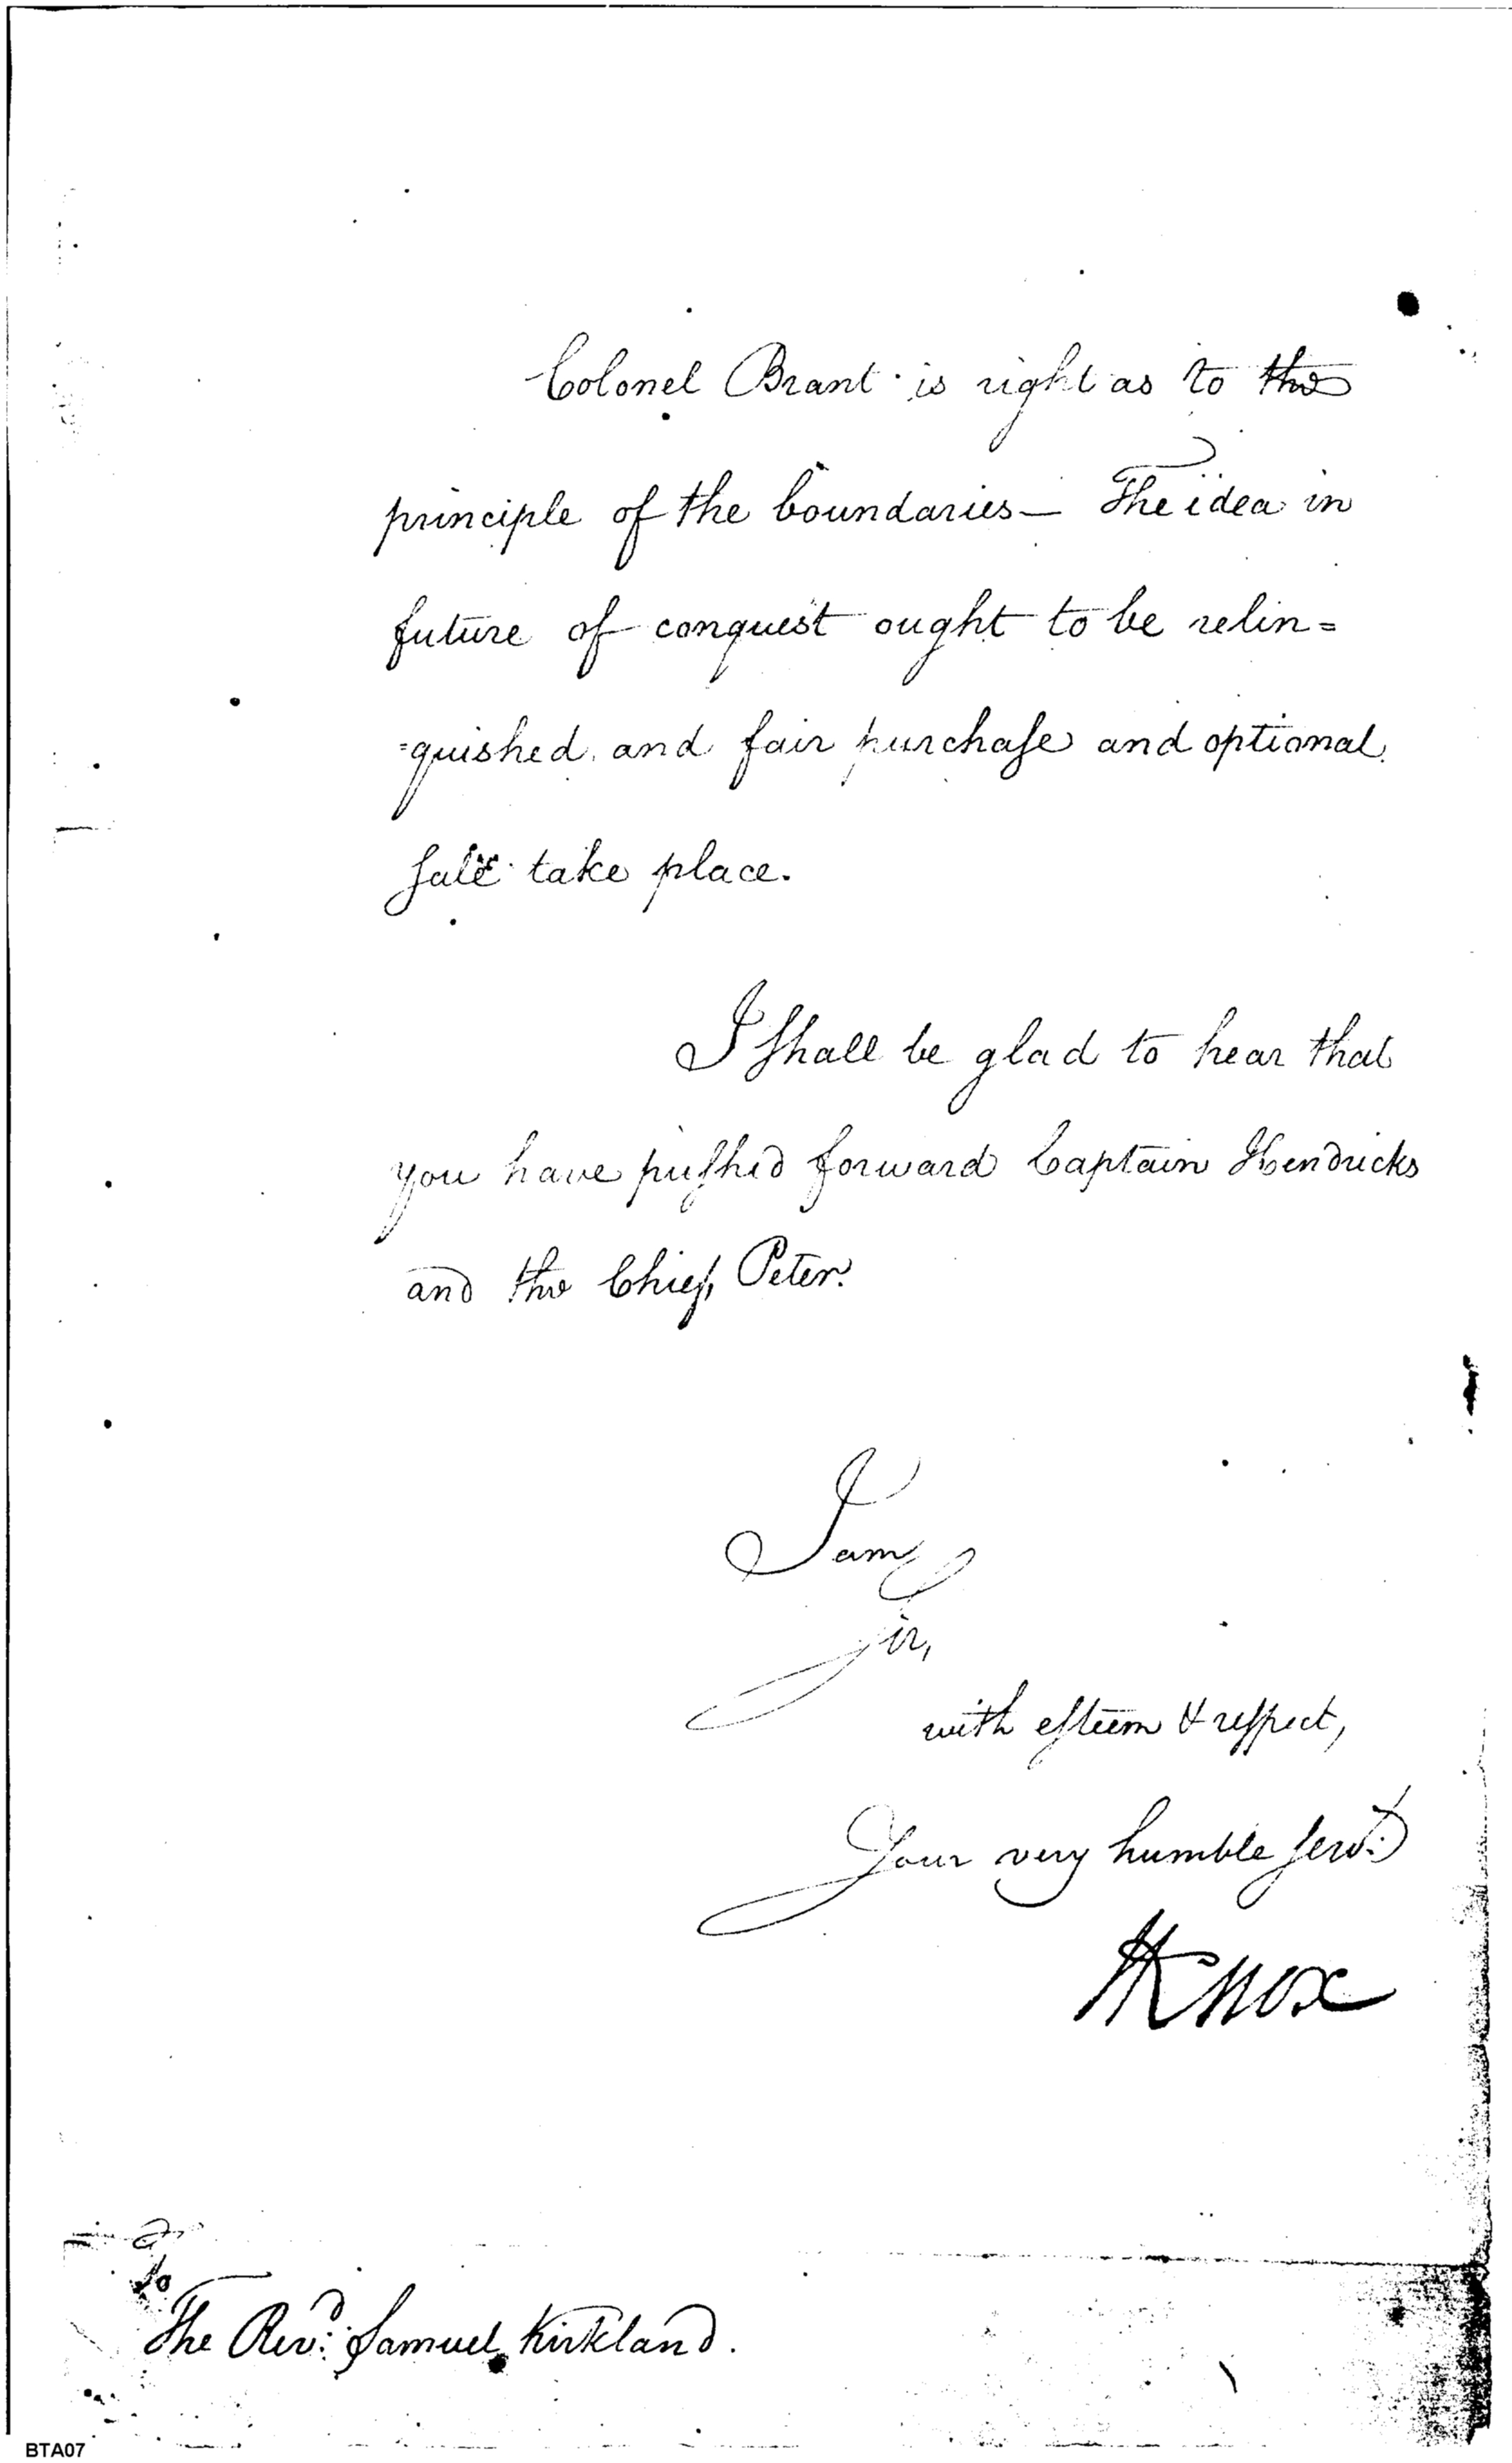 Colonel Brant is right as to the
principle of the boundaries — The idea in
future of conquest ought to be relin=
=quished, and fair purchase and optional
sale take place.
I shall be glad to hear that
you have pushed forward Captain Hendricks
and the Chief, Peter.
I am
Sir,
with esteem & respect,
Your very humble servt.
HKnox
To
The Revd. Samuel Kirkland.
BTA07